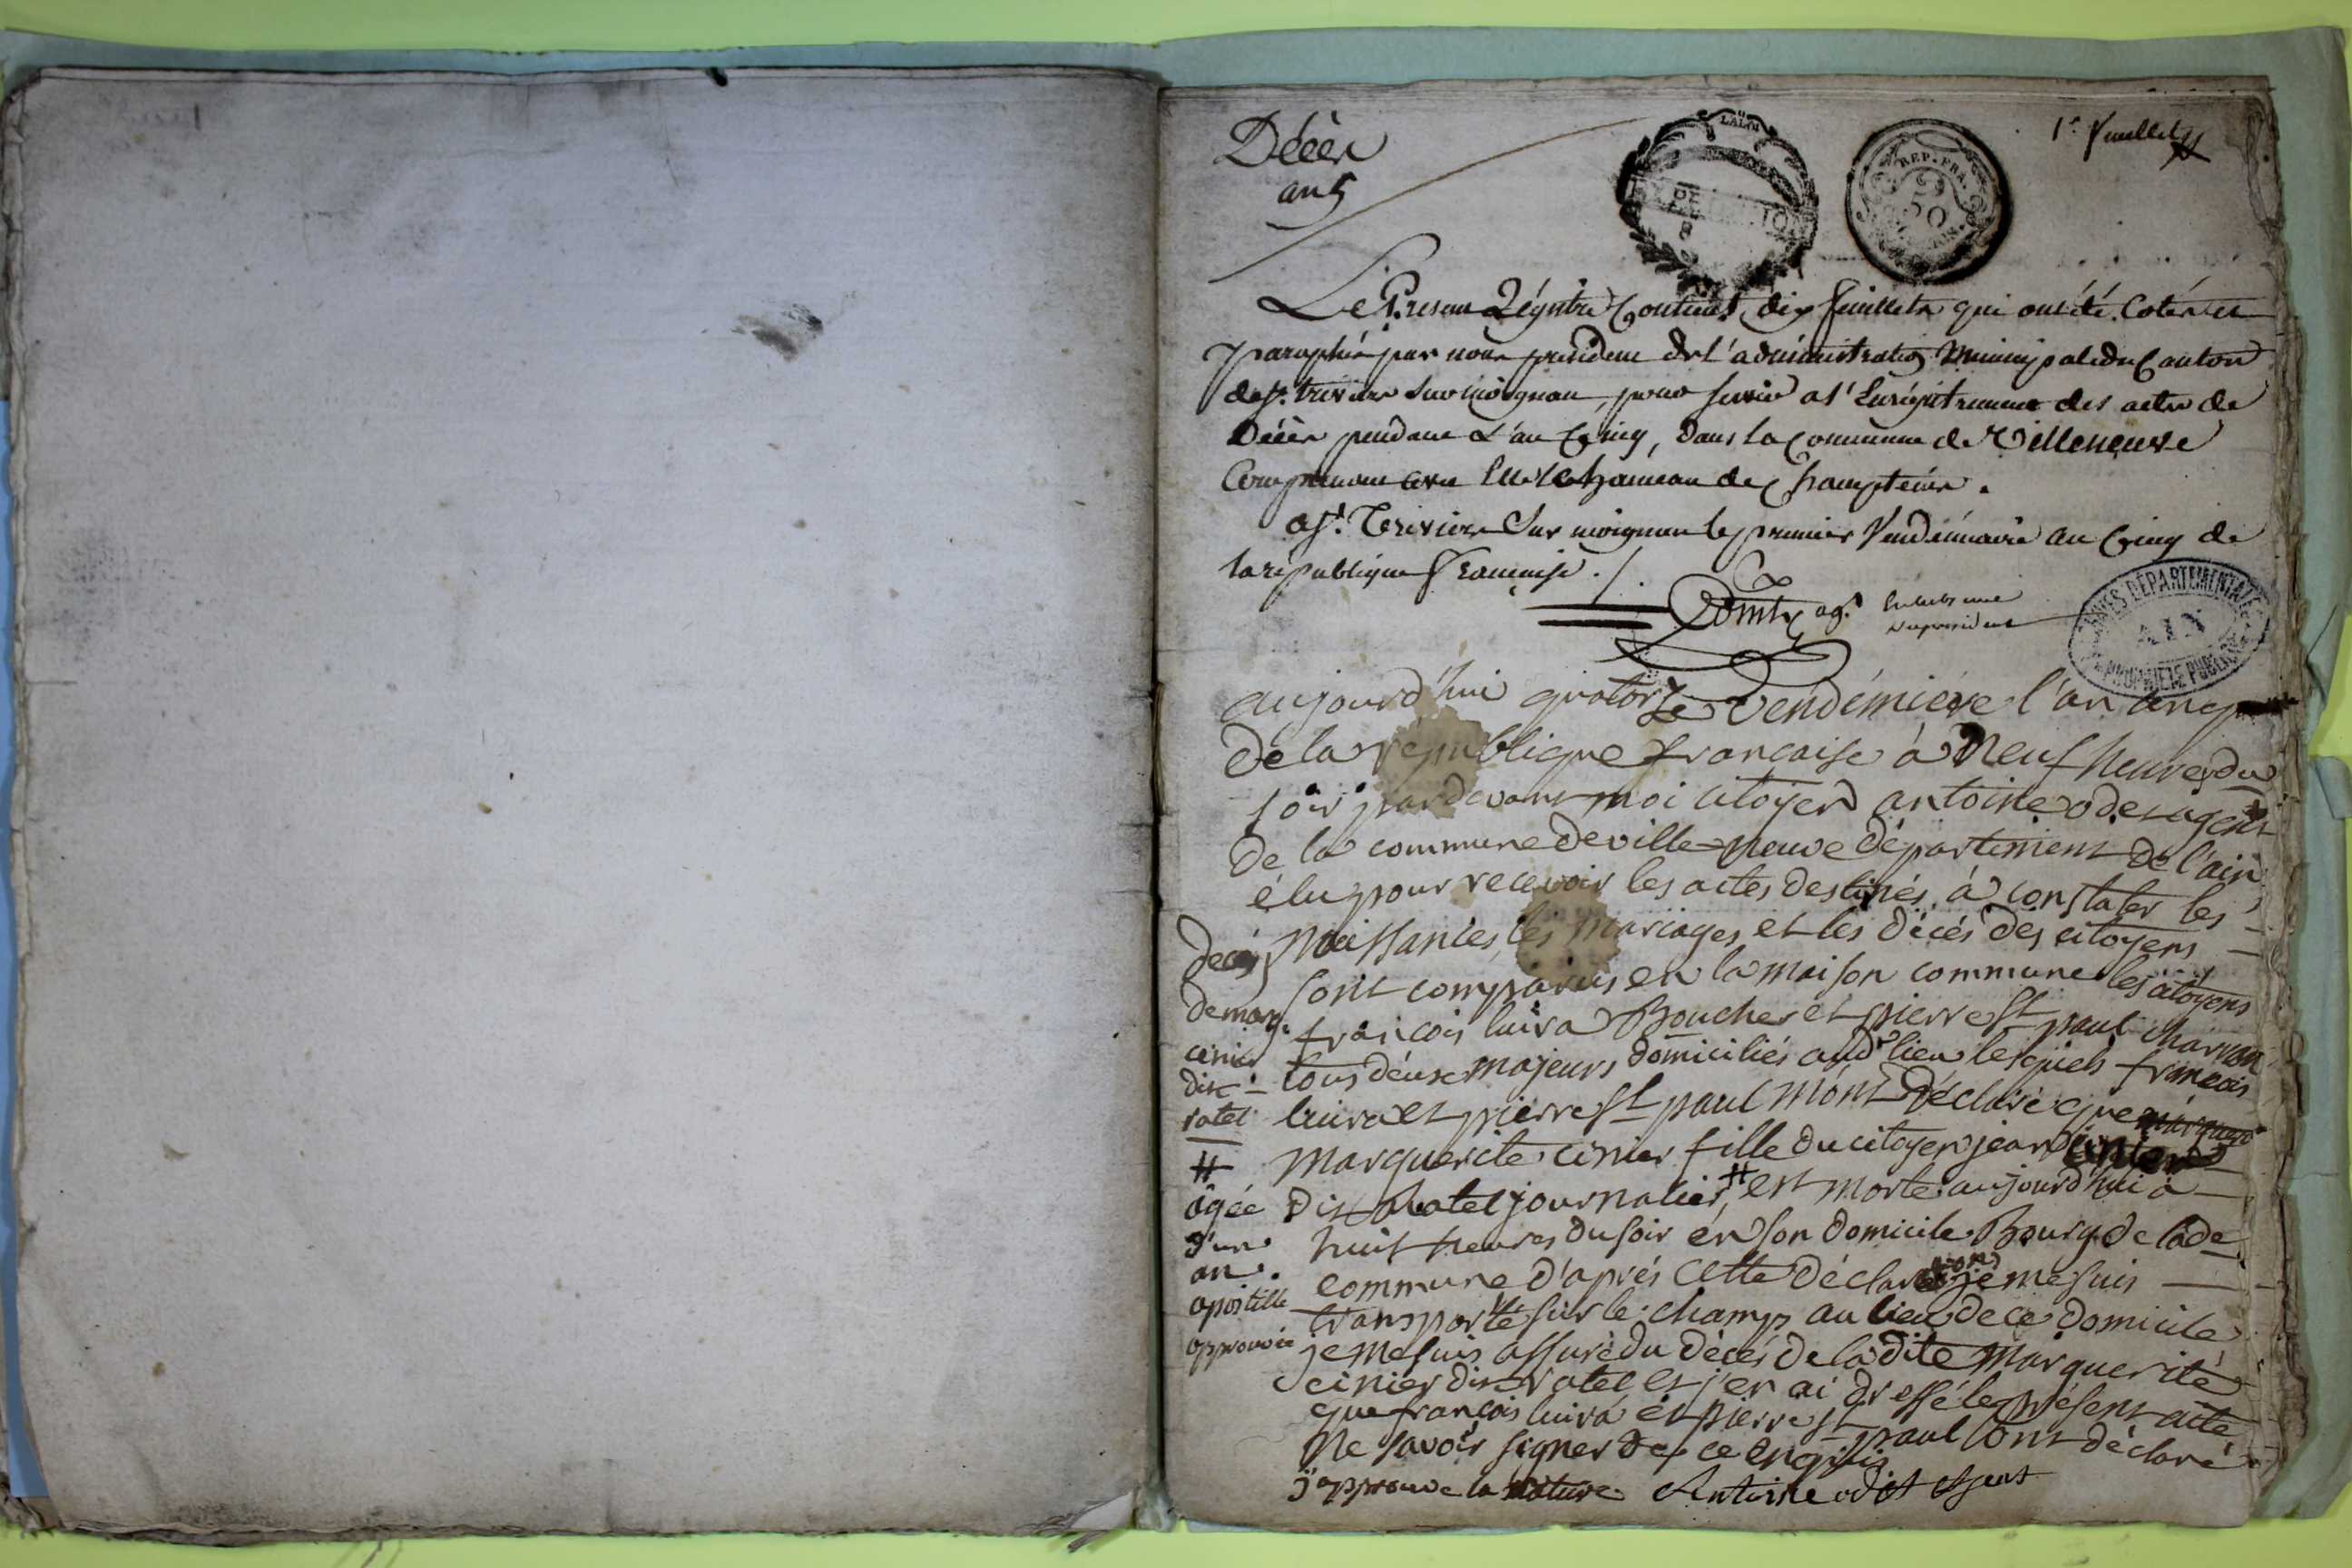 Décès
an 5
1er feuillet
LA LOI
REP. FRA.
Le Present Régistre Contient dix feuillets qui ont été Cotés et
paraphés par nous president de l'administration Municipale du Canton
de St. trivier sur moignan, pour servir a l'Enrégistrement des actes de
Décès pendant L'an Cinq, dans la Commune de Villeneuve
Comprenant avec Elle le hameau de Champteins.
a St. Trivier Sur moignan le premier Vendémiaire an Cinq de
la république française ./.
Comte ag.
ARCHIVES DÉPARTEMENTALES
AIN
PROPRIÉTÉ PUBLIQUE
aujourd'hui quatorze Vendémiére l'an cinq
De la république francaise à Neuf heures du
soir pardevant moi citoyen antoine odet agent
De la commune de ville=neuve département de l'ain
élu pour recevoir les actes destinés à constater les
Naissances, les Mariages et les décès des citoyens
sont comparus en la maison commune les citoyens
francois luira Boucher et pierre St paul charron
tous deux majeurs domiciliés audt lieu lesquels francois
luira et pierre St paul m'ont Déclaré que
Marguerite cinier fille du citoyen jean cinier
Dit Ratel journalier, # est morte aujourd'hui à
huit heures du soir en son domicile Bourg de lade
commune d'aprés cette déclaration je me suis
transporté sur le champ au lieu de ce domicile
je me suis assuré du décés de la dite Marguerite
cinier dit ratel et j'en ai dressé le présent acte
que françois luira et pierre St paul ont déclaré
Ne savoir signer de ce enquis
j'approuve la rature Antoine odet agent
Decés
de marg.
cinier
dit
ratel
#
âgée
d'un
an.
apostille
approuvée